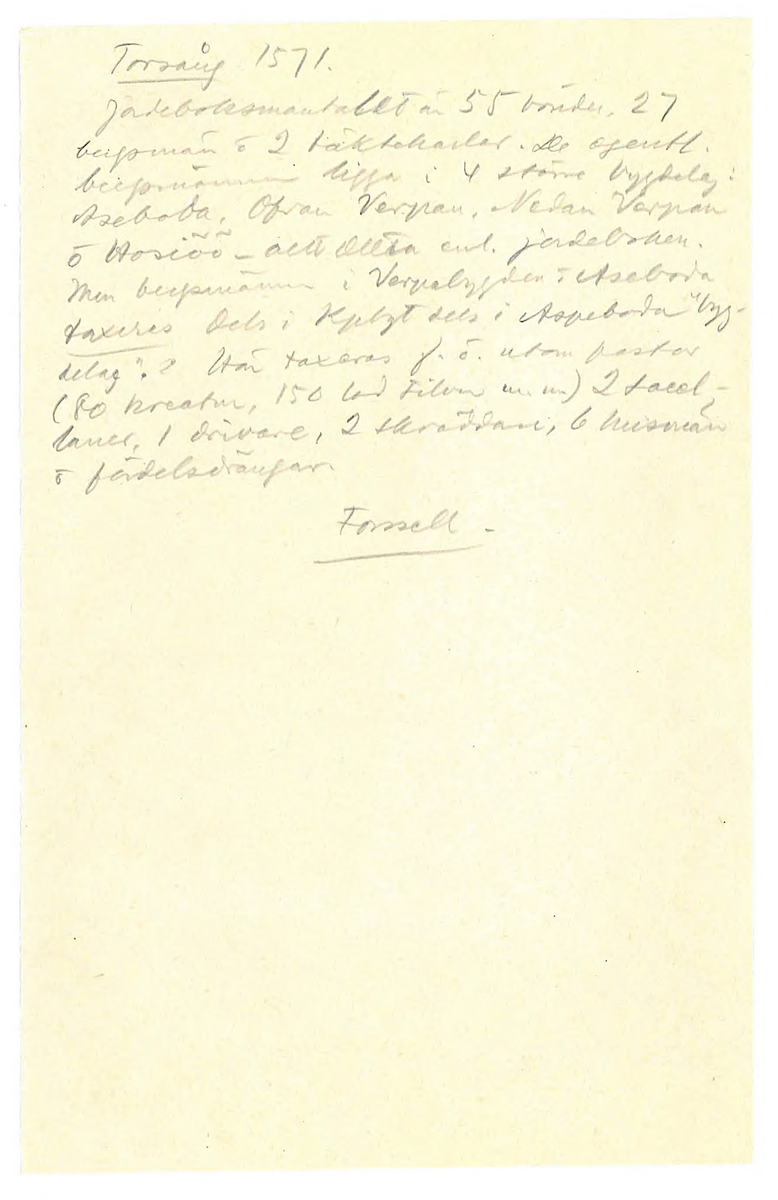 Torsång 1571.
Jordeboksmantalet är 55 bönder, 27
bergsmän o 2 täktekarlar. De egentl.
bergsmännen ligga i 4 större bygdelag:
Aseboda, Ofvan Verpan, Nedan Verpan
o Hosiöö – allt detta enl. jordeboken.
Men bergsmännen i Verpabygden o Aseboda
taxeras dels i Kpbgt dels i Aspeboda "byg-
delag". Här taxeras f. ö. utom pastor
(80 kreatur, 150 lod silver m. m.) 2 sacel-
laner, 1 drivare, 2 skräddare, 6 husmän
o fördelsdrängar.
Forssell –